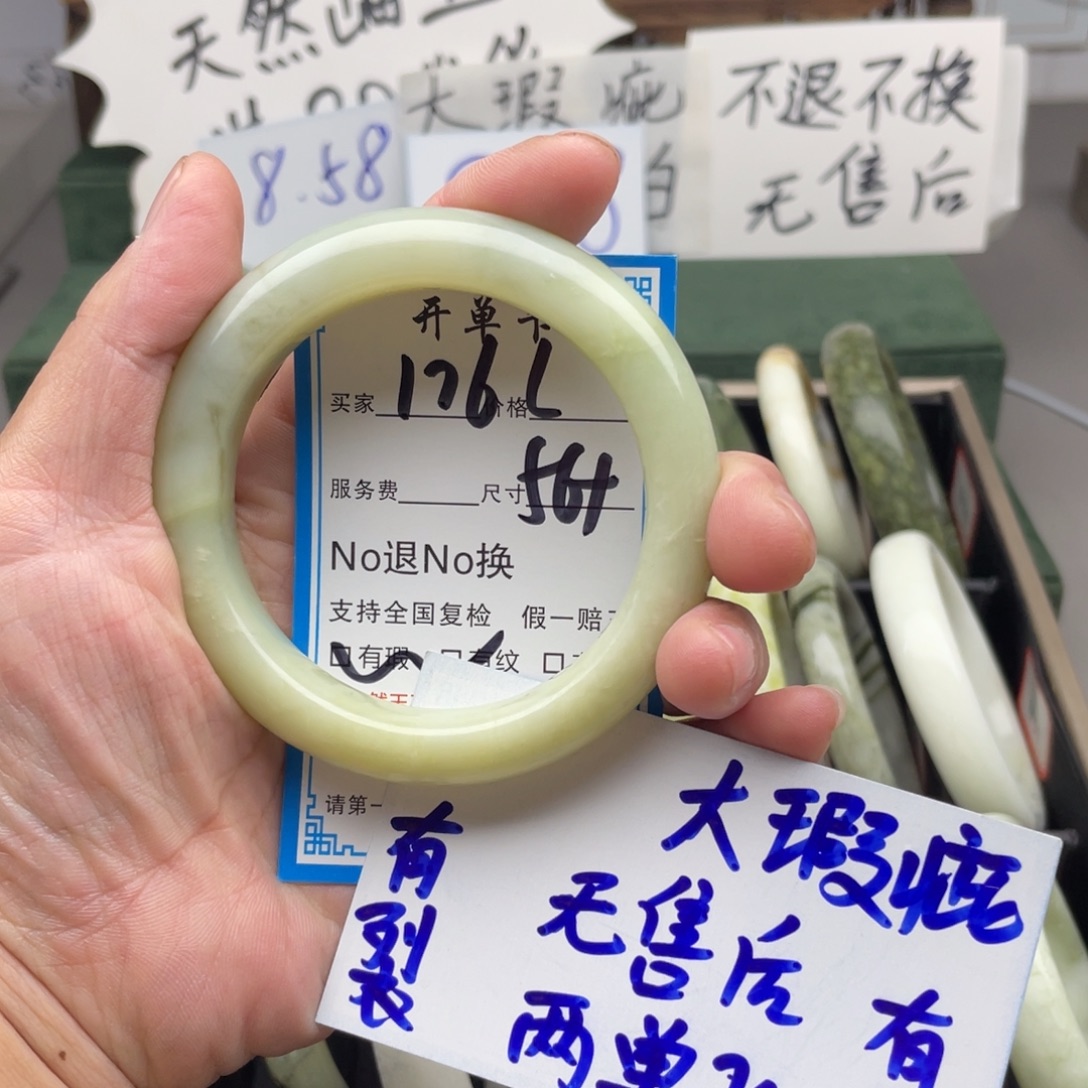 天然
大瑕疵
不退不换
无售后
8.58
开单卡
买家 176L 价格
服务费 尺寸 564
No退No换
支持全国复检 假一赔
有瑕 有纹
请第一
有裂
大瑕疵
无售后
两单
有